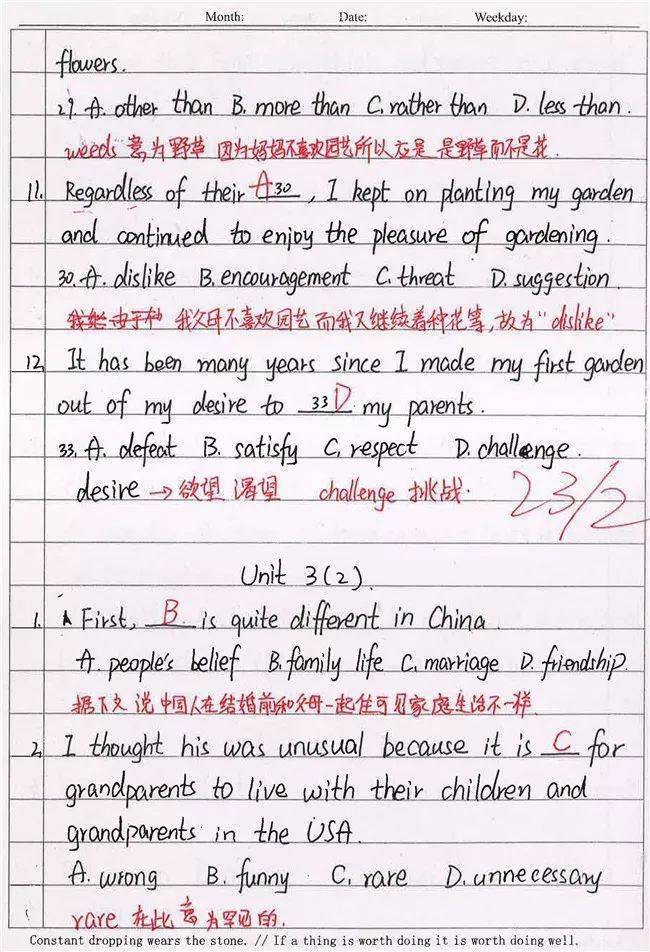 Month: Date: Weekday:
flowers.
29. A. other than B. more than C. rather than D. less than.
weeds 意为野草 因为妈妈不喜欢园艺所以应是 是野草而不是花.
11. Regardless of their A 30, I kept on planting my garden
and continued to enjoy the pleasure of gardening.
30. A. dislike B. encouragement C. threat D. suggestion.
我父母不喜欢园艺而我又继续着种花等,故为"dislike"
12. It has been many years since I made my first garden
out of my desire to 33 D my parents.
33. A. defeat B. satisfy C. respect D. challenge.
desire → 欲望 渴望 challenge 挑战.
23/2
Unit 3(2).
1. First, B is quite different in China
A. people's belief B. family life C. marriage D. friendship.
据下文 说中国人在结婚前和父母一起住可见家庭生活不一样.
2. I thought his was unusual because it is C for
grandparents to live with their children and
grandparents in the USA.
A. wrong B. funny C. rare D. unnecessary
rare 在此意为罕见的.
Constant dropping wears the stone. // If a thing is worth doing it is worth doing well.